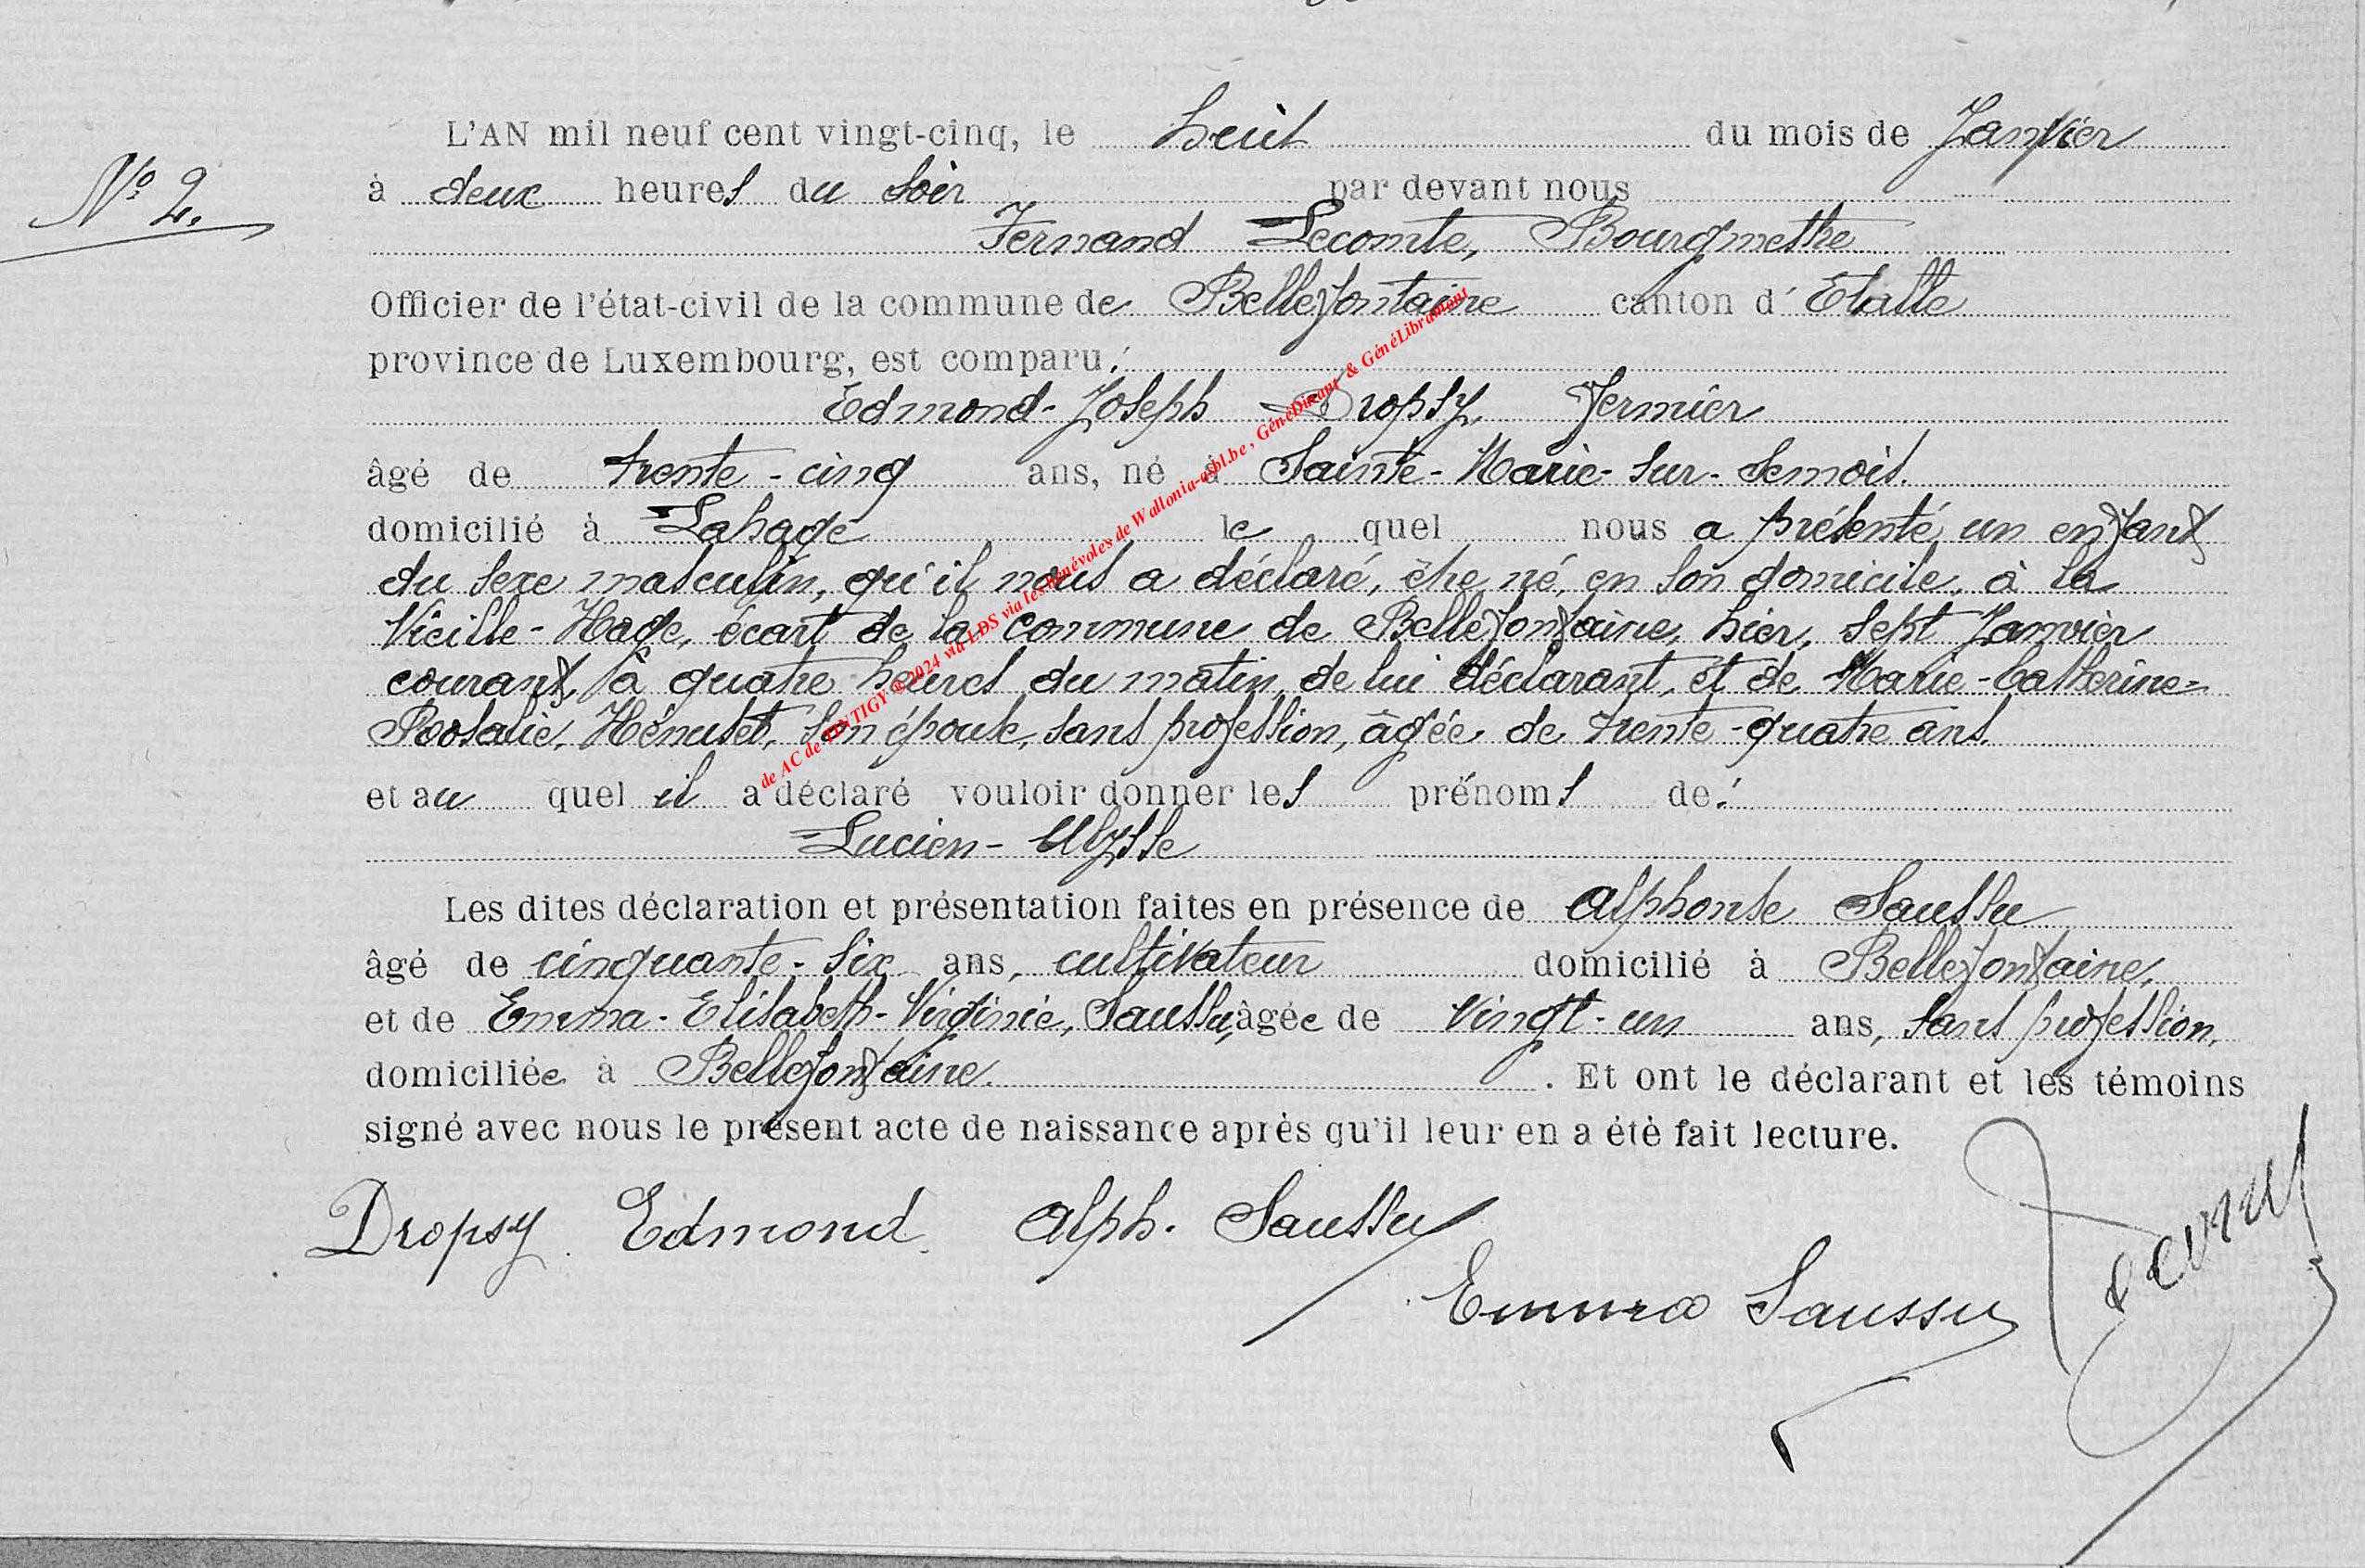 L'AN mil neuf cent vingt-cinq, le huit du mois de Janvier
N° 2.
à deux heures du soir par devant nous
Fernand Lecomte, Bourgmestre
Officier de l'état-civil de la commune de Bellefontaine canton d'Etalle
province de Luxembourg, est comparu:
Edmond-Joseph Dropsy, Fermier
âgé de trente-cinq ans, né à Sainte-Marie-sur-Semois.
domicilié à Lahage lequel nous a présenté un enfant
du sexe masculin, qu'il nous a déclaré, être né, en son domicile, à la
Vieille-Hage, écart de la commune de Bellefontaine, hier, sept Janvier
courant, à quatre heures du matin, de lui déclarant, et de Marie-Catherine-
Rosalie, Hénuset, son épouse, sans profession, âgée de trente-quatre ans.
et auquel il a déclaré vouloir donner les prénoms de:
Lucien-Ulysse
Les dites déclaration et présentation faites en présence de Alphonse Saussu
âgé de cinquante-six ans, cultivateur domicilié à Bellefontaine,
et de Emma-Elisabeth-Virginie, Saussu, âgée de vingt-un ans, sans profession,
domiciliée à Bellefontaine. Et ont le déclarant et les témoins
signé avec nous le présent acte de naissance après qu'il leur en a été fait lecture.
Dropsy Edmond. Alph. Saussu
Emma Saussu
de AC de TINTIGY ©2024 via LDS via les bénévoles de Wallonia-asbl.be, GénéDinant & GénéLibramont